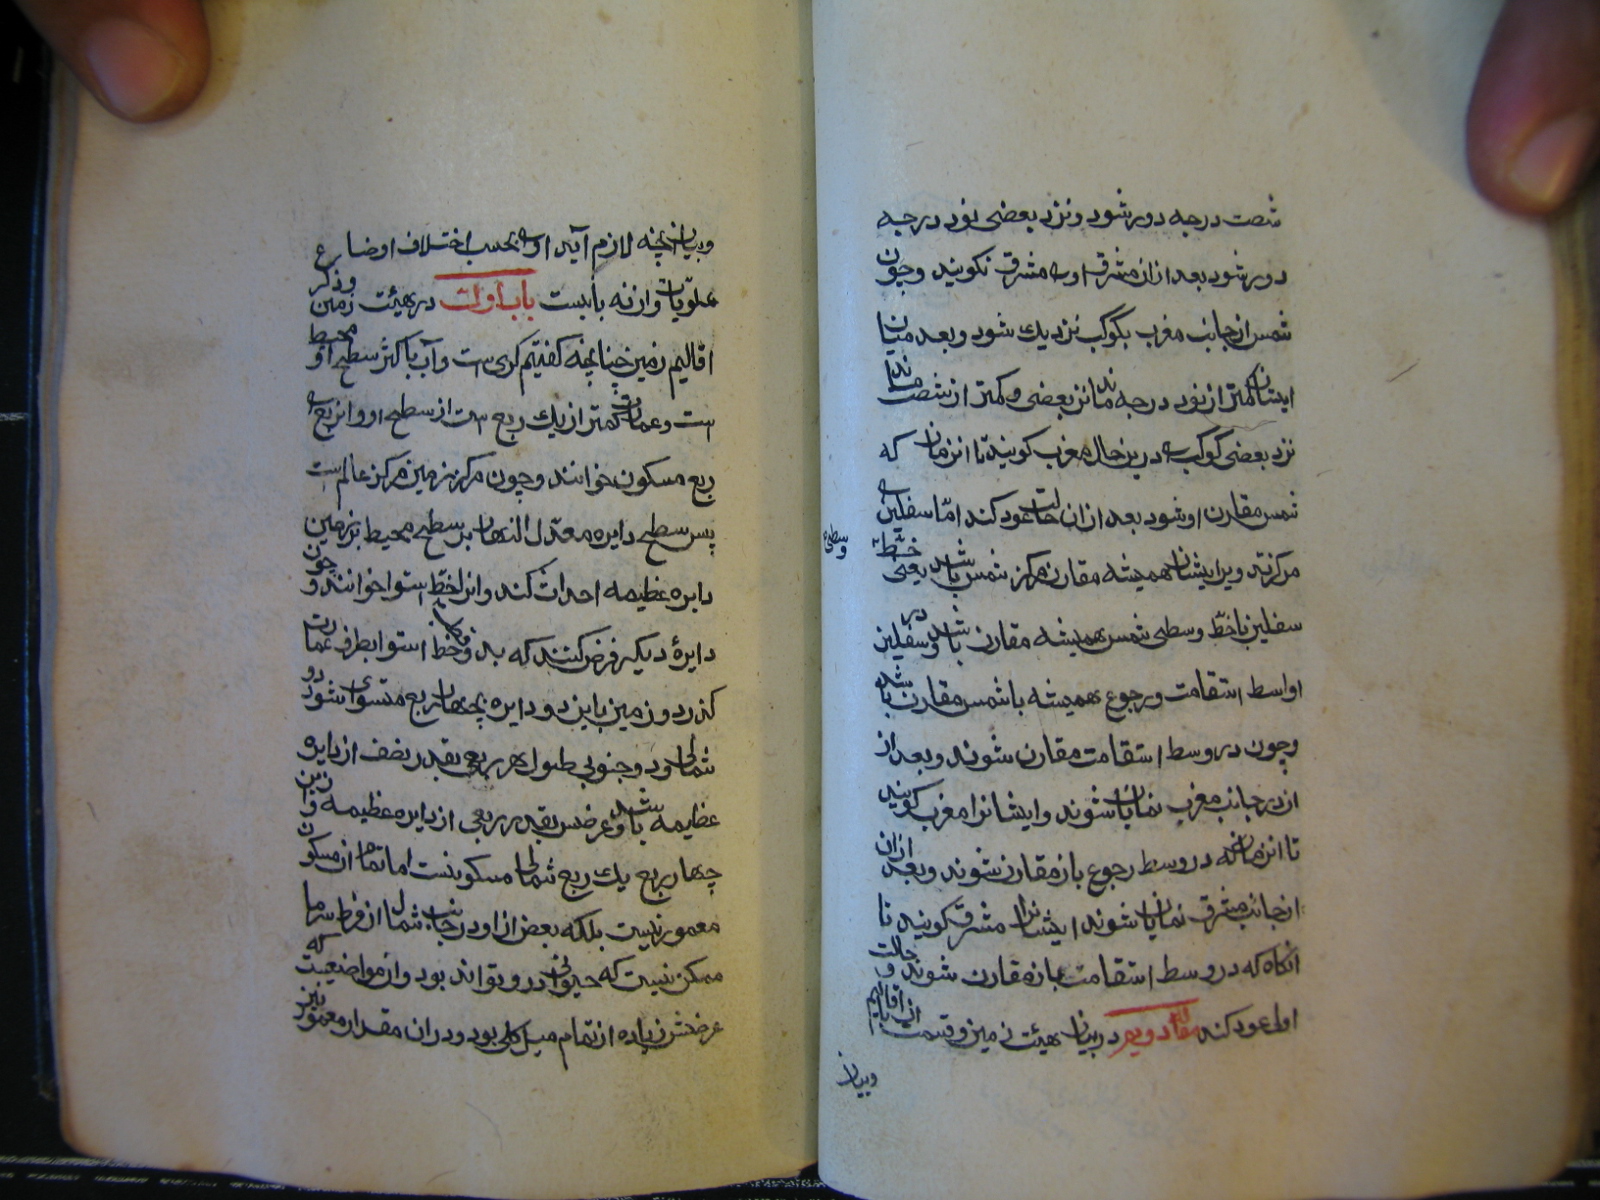 شصت درجه دور شود و نزد بعضی نود درجه
دور شود بعد ازان مشرق اوست مشرق نکویند و چون
شمس از جانب مغرب بکوکب نزدیك شود و بعد میان
ایشان کمتر از نود درجه ماند نزد بعضی و کمتر از شصت ماند
نزد بعضی کوکب را درین حال مغرب کویند تا انزمان که
شمس مقارن او شود بعد ازان حالت عود کند امّا سفلیین را
مرکز تدویر ایشان همیشه مقارن مرکز شمس باشد یعنی خط
وسطی
سفلیین با خطّ وسطی شمس همیشه مقارن باشد و سفلیین در
اواسط استقامت و رجوع همیشه با شمس مقارن باشند
و چون در وسط استقامت مقارن شوند و بعد از
ان در جانب مغرب نمایان شوند و ایشانرا مغرب کویند
تا انزمان که در وسط رجوع باز مقارن شوند و بعد ازان
از جانب مشرق نمایان شوند ایشانرا مشرق کویند تا
انکاه که در وسط استقامت باز مقارن شوند و حالت
اولی عود کند مقاله دویم در بیان هیئت زمین و قسمت ان باقالیم
و بیان
و بیان انچه لازم آید او را بحسب اختلاف اوضاع
علویّات و ان نه بابست باب اول در هیئت زمین و ذکر
اقالیم زمین چنانچه کفتیم کری است و آب باکثر سطح او محیط
است و عمارت کمتر از یك ربع است از سطح او و انربع را
ربع مسکون خوانند و چون مرکز زمین مرکز عالم است
پس سطح دایره معدّل النهار بر سطح محیط بزمین
دایره عظیمه احداث کند و انرا خطّ استوا خوانند و چون
دایرهٔ دیکر فرض کنند که بدو قطب خط استوا بطرف عمارت
کذرد و زمین باین دو دایره بچهار ربع متسوی شود دو
شمالی و دو جنوبی طول هر ربعی بقدر نصف از دایره
عظیمه باشد و عرضش بقدر ربعی از دایره عظیمه و ازین
چهار ربع یك ربع شمالی مسکونست اما تمام ان مسکون
معمور نیست بلکه بعض ازو در جانب شمال از فرط سرما
ممکن نیست که حیوانی درو تواند بود و ان مواضعیست که
عرضش زیاده از تمام میل کلی بود و در ان مقدار معمور نیز